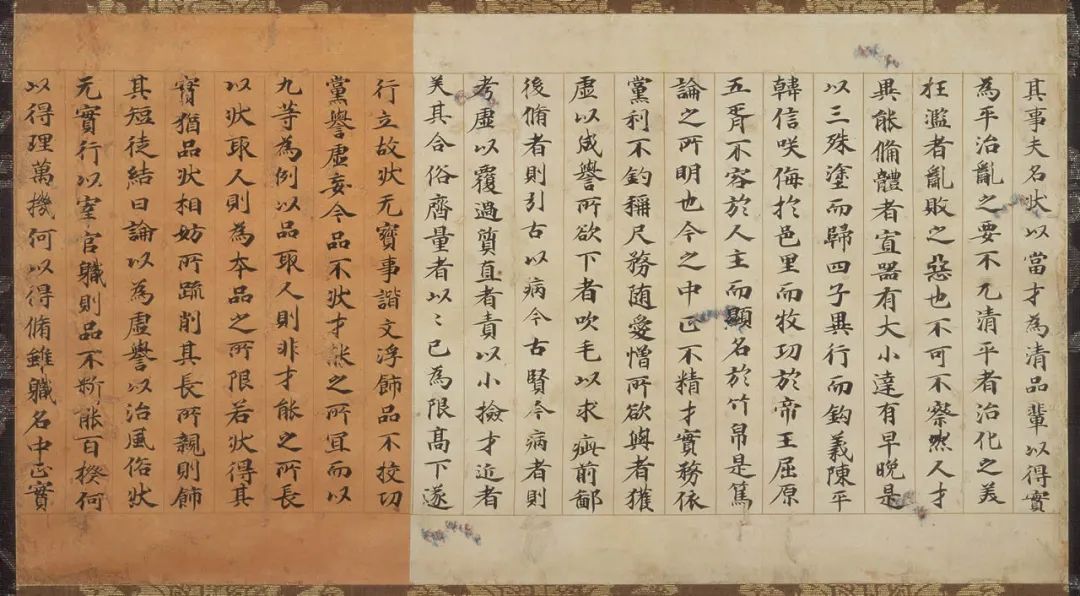 其事夫名狀以當才為清品輩以得實
為平治亂之要不允清平者治化之美
枉濫者亂敗之惡也不可不察然人才
異能俻體者寡器有大小達有早晚是
以三殊塗而歸四子異行而鈞義陳平
韓信咲侮於邑里而牧功於帝王屈原
五胥不容於人主而顯名於竹帛是篤
論之所明也今之中正不精才實務依
黨利不鈞稱尺務随愛憎所欲與者獲
虛以成譽所欲下者吹毛以求疵前鄙
後脩者則引古以病今古賢今病者則
考虛以覆過質直者責以小撿才近者
美其合俗齊量者以〻已為限高下遂
行立故狀无實事諧文浮飾品不挍功
黨譽虛妄今品不狀才㷱之所宜而以
九等為例以品取人則非才能之所長
以狀取人則為本品之所限若狀得其
實猶品狀相妨所疏削其長所親則飾
其短徒結曰論以為虛譽以治風俗狀
无實行以宰官職則品不斷能百揆何
以得理萬機何以得脩雖職名中正實